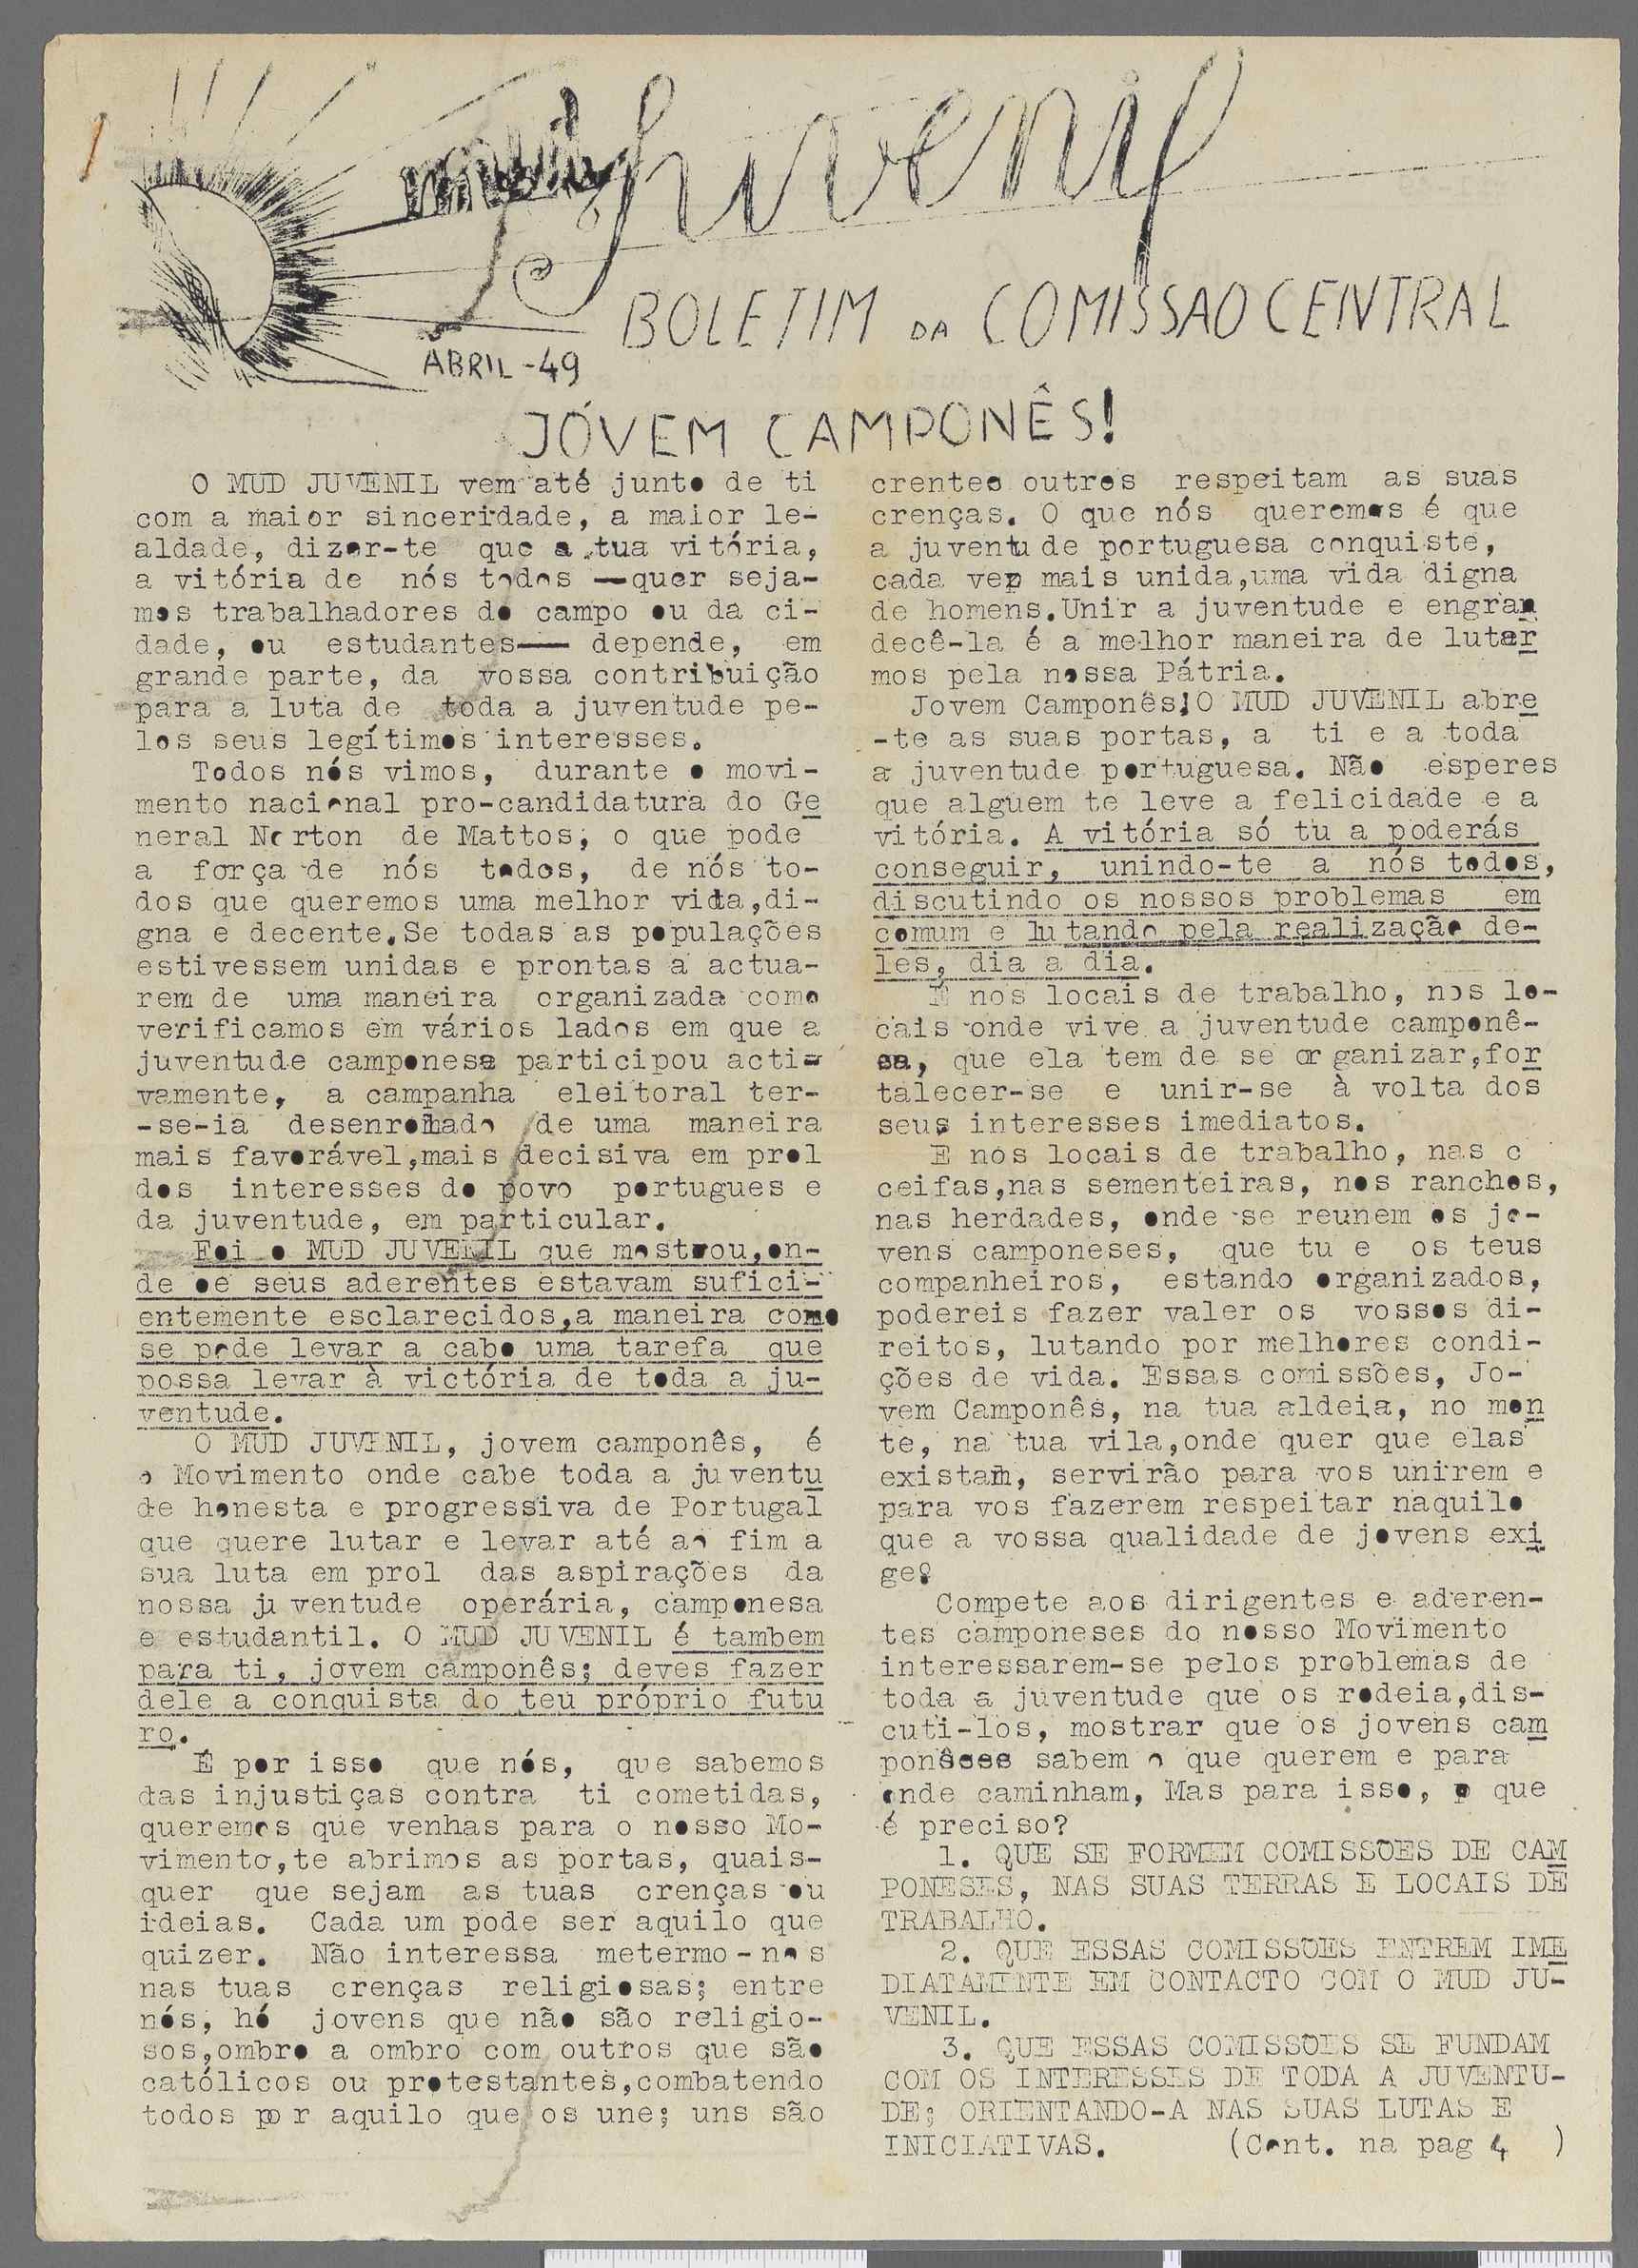 mud Juvenil
BOLETIM DA COMISSAO CENTRAL
ABRIL-49
JÓVEM CAMPONÊS!
O MUD JUVENIL vem até junto de ti
com a maior sinceridade, a maior le-
aldade, dizer-te que a tua vitória,
a vitória de nós todos —quer seja-
mos trabalhadores do campo ou da ci-
dade, ou estudantes— depende, em
grande parte, da vossa contribuição
para a luta de toda a juventude pe-
los seus legítimos interesses.
Todos nós vimos, durante o movi-
mento nacional pro-candidatura do Ge
neral Norton de Mattos, o que pode
a força de nós todos, de nós to-
dos que queremos uma melhor vida,di-
gna e decente.Se todas as populações
estivessem unidas e prontas a actua-
rem de uma maneira organizada como
verificamos em vários lados em que a
juventude camponesa participou acti-
vamente, a campanha eleitoral ter-
-se-ia desenrolado de uma maneira
mais favorável,mais decisiva em prol
dos interesses do povo portugues e
da juventude, em particular.
Foi o MUD JUVENIL que mostrou,on-
de oe seus aderentes estavam sufici-
entemente esclarecidos,a maneira como
se pode levar a cabo uma tarefa que
possa levar à victória de toda a ju-
ventude.
O MUD JUVENIL, jovem camponês, é
o Movimento onde cabe toda a juventu
de honesta e progressiva de Portugal
que quere lutar e levar até ao fim a
sua luta em prol das aspirações da
nossa ju ventude operária, camponesa
e estudantil. O MUD JUVENIL é tambem
para ti, jovem camponês; deves fazer
dele a conquista do teu próprio futu
ro.
É por isso que nós, que sabemos
das injustiças contra ti cometidas,
queremos que venhas para o nosso Mo-
vimento,te abrimos as portas, quais-
quer que sejam as tuas crenças ou
ideias. Cada um pode ser aquilo que
quizer. Não interessa metermo-nos
nas tuas crenças religiosas; entre
nós, hó jovens que não são religio-
sos,ombro a ombro com outros que são
católicos ou protestantes,combatendo
todos por aquilo que os une; uns são
crenteo outros respeitam as suas
crenças. O que nós queremos é que
a juventude portuguesa conquiste,
cada vep mais unida,uma vida digna
de homens.Unir a juventude e engran
decê-la é a melhor maneira de lutar
mos pela nossa Pátria.
Jovem Camponês!O MUD JUVENIL abre
-te as suas portas, a ti e a toda
a juventude portuguesa. Não esperes
que alguem te leve a felicidade e a
vitória. A vitória só tu a poderás
conseguir, unindo-te a nós todos,
discutindo os nossos problemas em
comum e lutando pela realização de-
les, dia a dia.
É nos locais de trabalho, nos lo-
cais onde vive a juventude camponê-
sa, que ela tem de se or ganizar,for
talecer-se e unir-se à volta dos
seus interesses imediatos.
E nos locais de trabalho, nas c
ceifas,nas sementeiras, nos ranchos,
nas herdades, onde se reunem os jo-
vens camponeses, que tu e os teus
companheiros, estando organizados,
podereis fazer valer os vossos di-
reitos, lutando por melhores condi-
ções de vida. Essas comissões, Jo-
vem Camponês, na tua aldeia, no mon
te, na tua vila,onde quer que elas
existam, servirão para vos unirem e
para vos fazerem respeitar naquilo
que a vossa qualidade de jovens exi
ge.
Compete aos dirigentes e aderen-
tes camponeses do nosso Movimento
interessarem-se pelos problemas de
toda a juventude que os rodeia,dis-
cuti-los, mostrar que os jovens cam
ponêses sabem o que querem e para
onde caminham, Mas para isso, o que
é preciso?
1. QUE SE FORMEM COMISSÕES DE CAM
PONESES, NAS SUAS TERRAS E LOCAIS DE
TRABALHO.
2. QUE ESSAS COMISSÕES ENTREM IME
DIATAMENTE EM CONTACTO COM O MUD JU-
VENIL.
3. QUE ESSAS COMISSÕES SE FUNDAM
COM OS INTERESSES DE TODA A JUVENTU-
DE; ORIENTANDO-A NAS SUAS LUTAS E
INICIATIVAS. (Cont. na pag 4 )